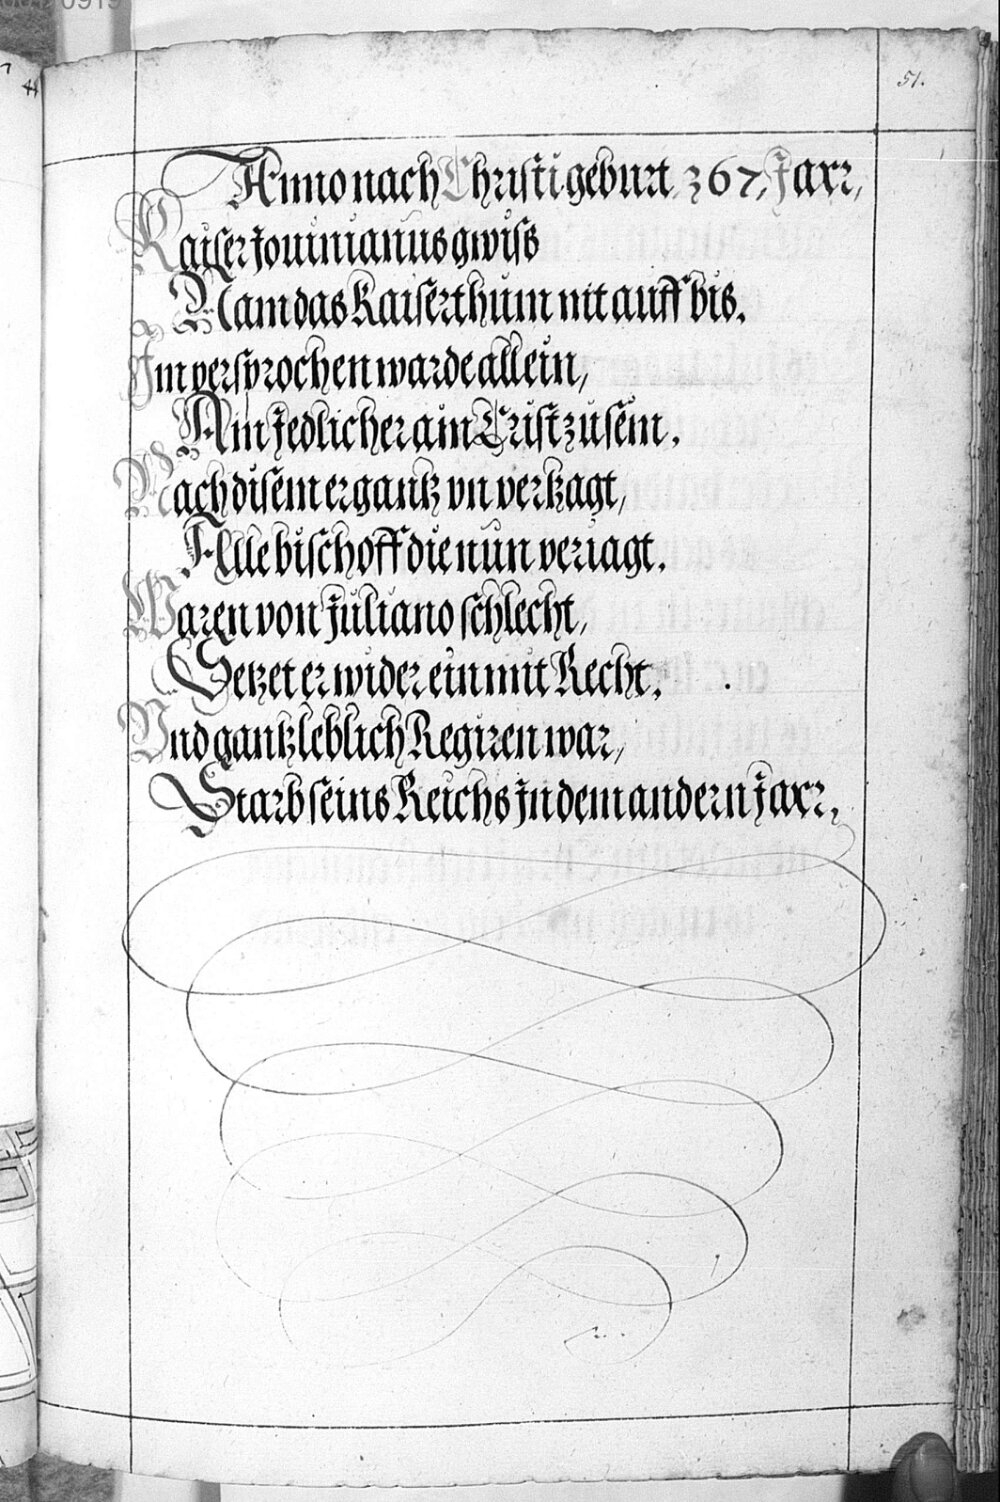 0919
44
51.
Anno nach Christi geburt 367, Jarr,
Kaiser Jouinianus gwiss
Nam das Kaiserthum nit auff bis.
Im versprochen warde allein,
Ain Jedlicher ain Crist zu sein.
Nach disem er gantz vn verzagt,
Alle bischoff die nun veriagt.
Waren von Juliano schlecht,
Setzet er wider ein mit Recht.
Vnd gantz leblich Regiren war,
Starb seins Reichs In dem andern Jarr.